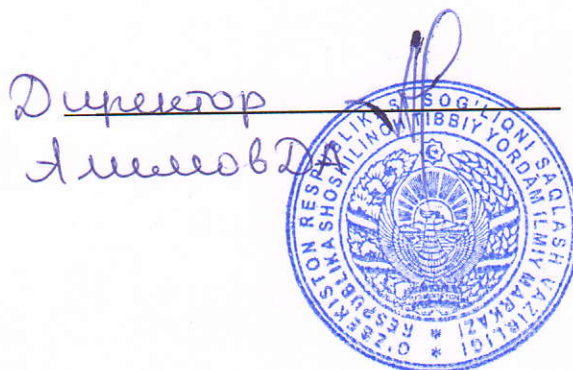 Директор
Алимов ДА
O'ZBEKISTON RESPUBLIKASI SOG'LIQNI SAQLASH VAZIRLIGI
RESPUBLIKA SHOSHILINCH TIBBIY YORDAM ILMIY MARKAZI